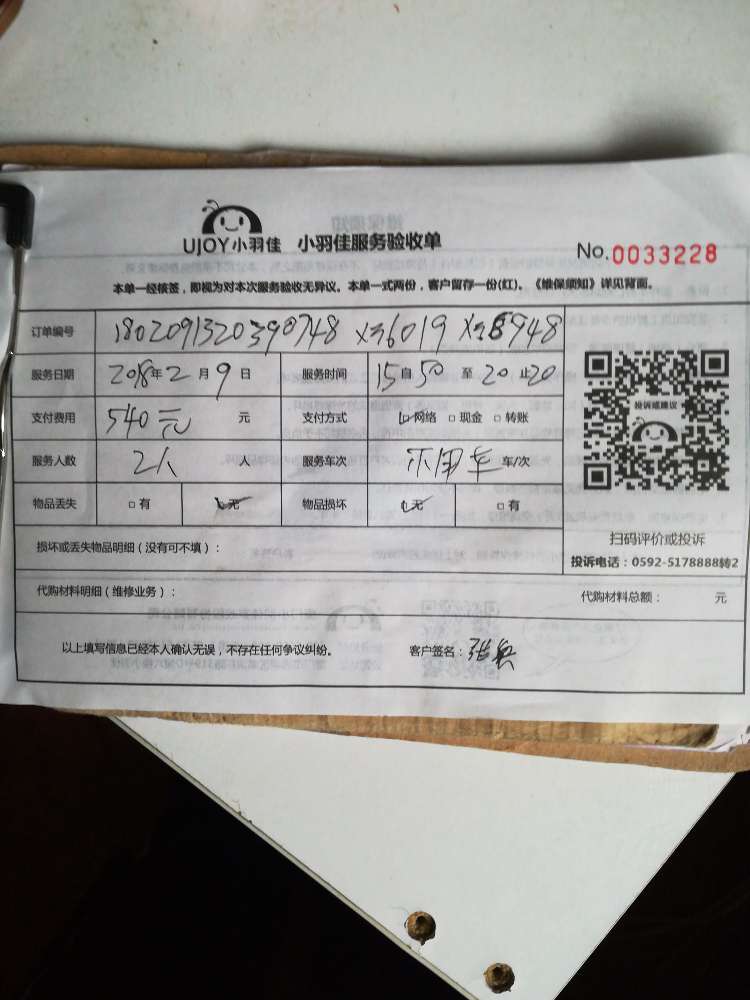 UJOY小羽佳 小羽佳服务验收单
No.0033228
本单一经核签，即视为对本次服务验收无异议。本单一式两份，客户留存一份(红)。《维保须知》详见背面。
订单编号 1802091320390748 X36019 X38948
服务日期 2018年2月9日 服务时间 15自50至20止20
支付费用 540元 元 支付方式 ☑网络 □现金 □转账
服务人数 2人 人 服务车次 不用车 车/次
物品丢失 □有 ☑无 物品损坏 ☑无 □有
投诉或建议
扫码评价或投诉
投诉电话：0592-5178888转2
损坏或丢失物品明细（没有可不填）：
代购材料明细（维修业务）： 代购材料总额： 元
以上填写信息已经本人确认无误，不存在任何争议纠纷。 客户签名：张